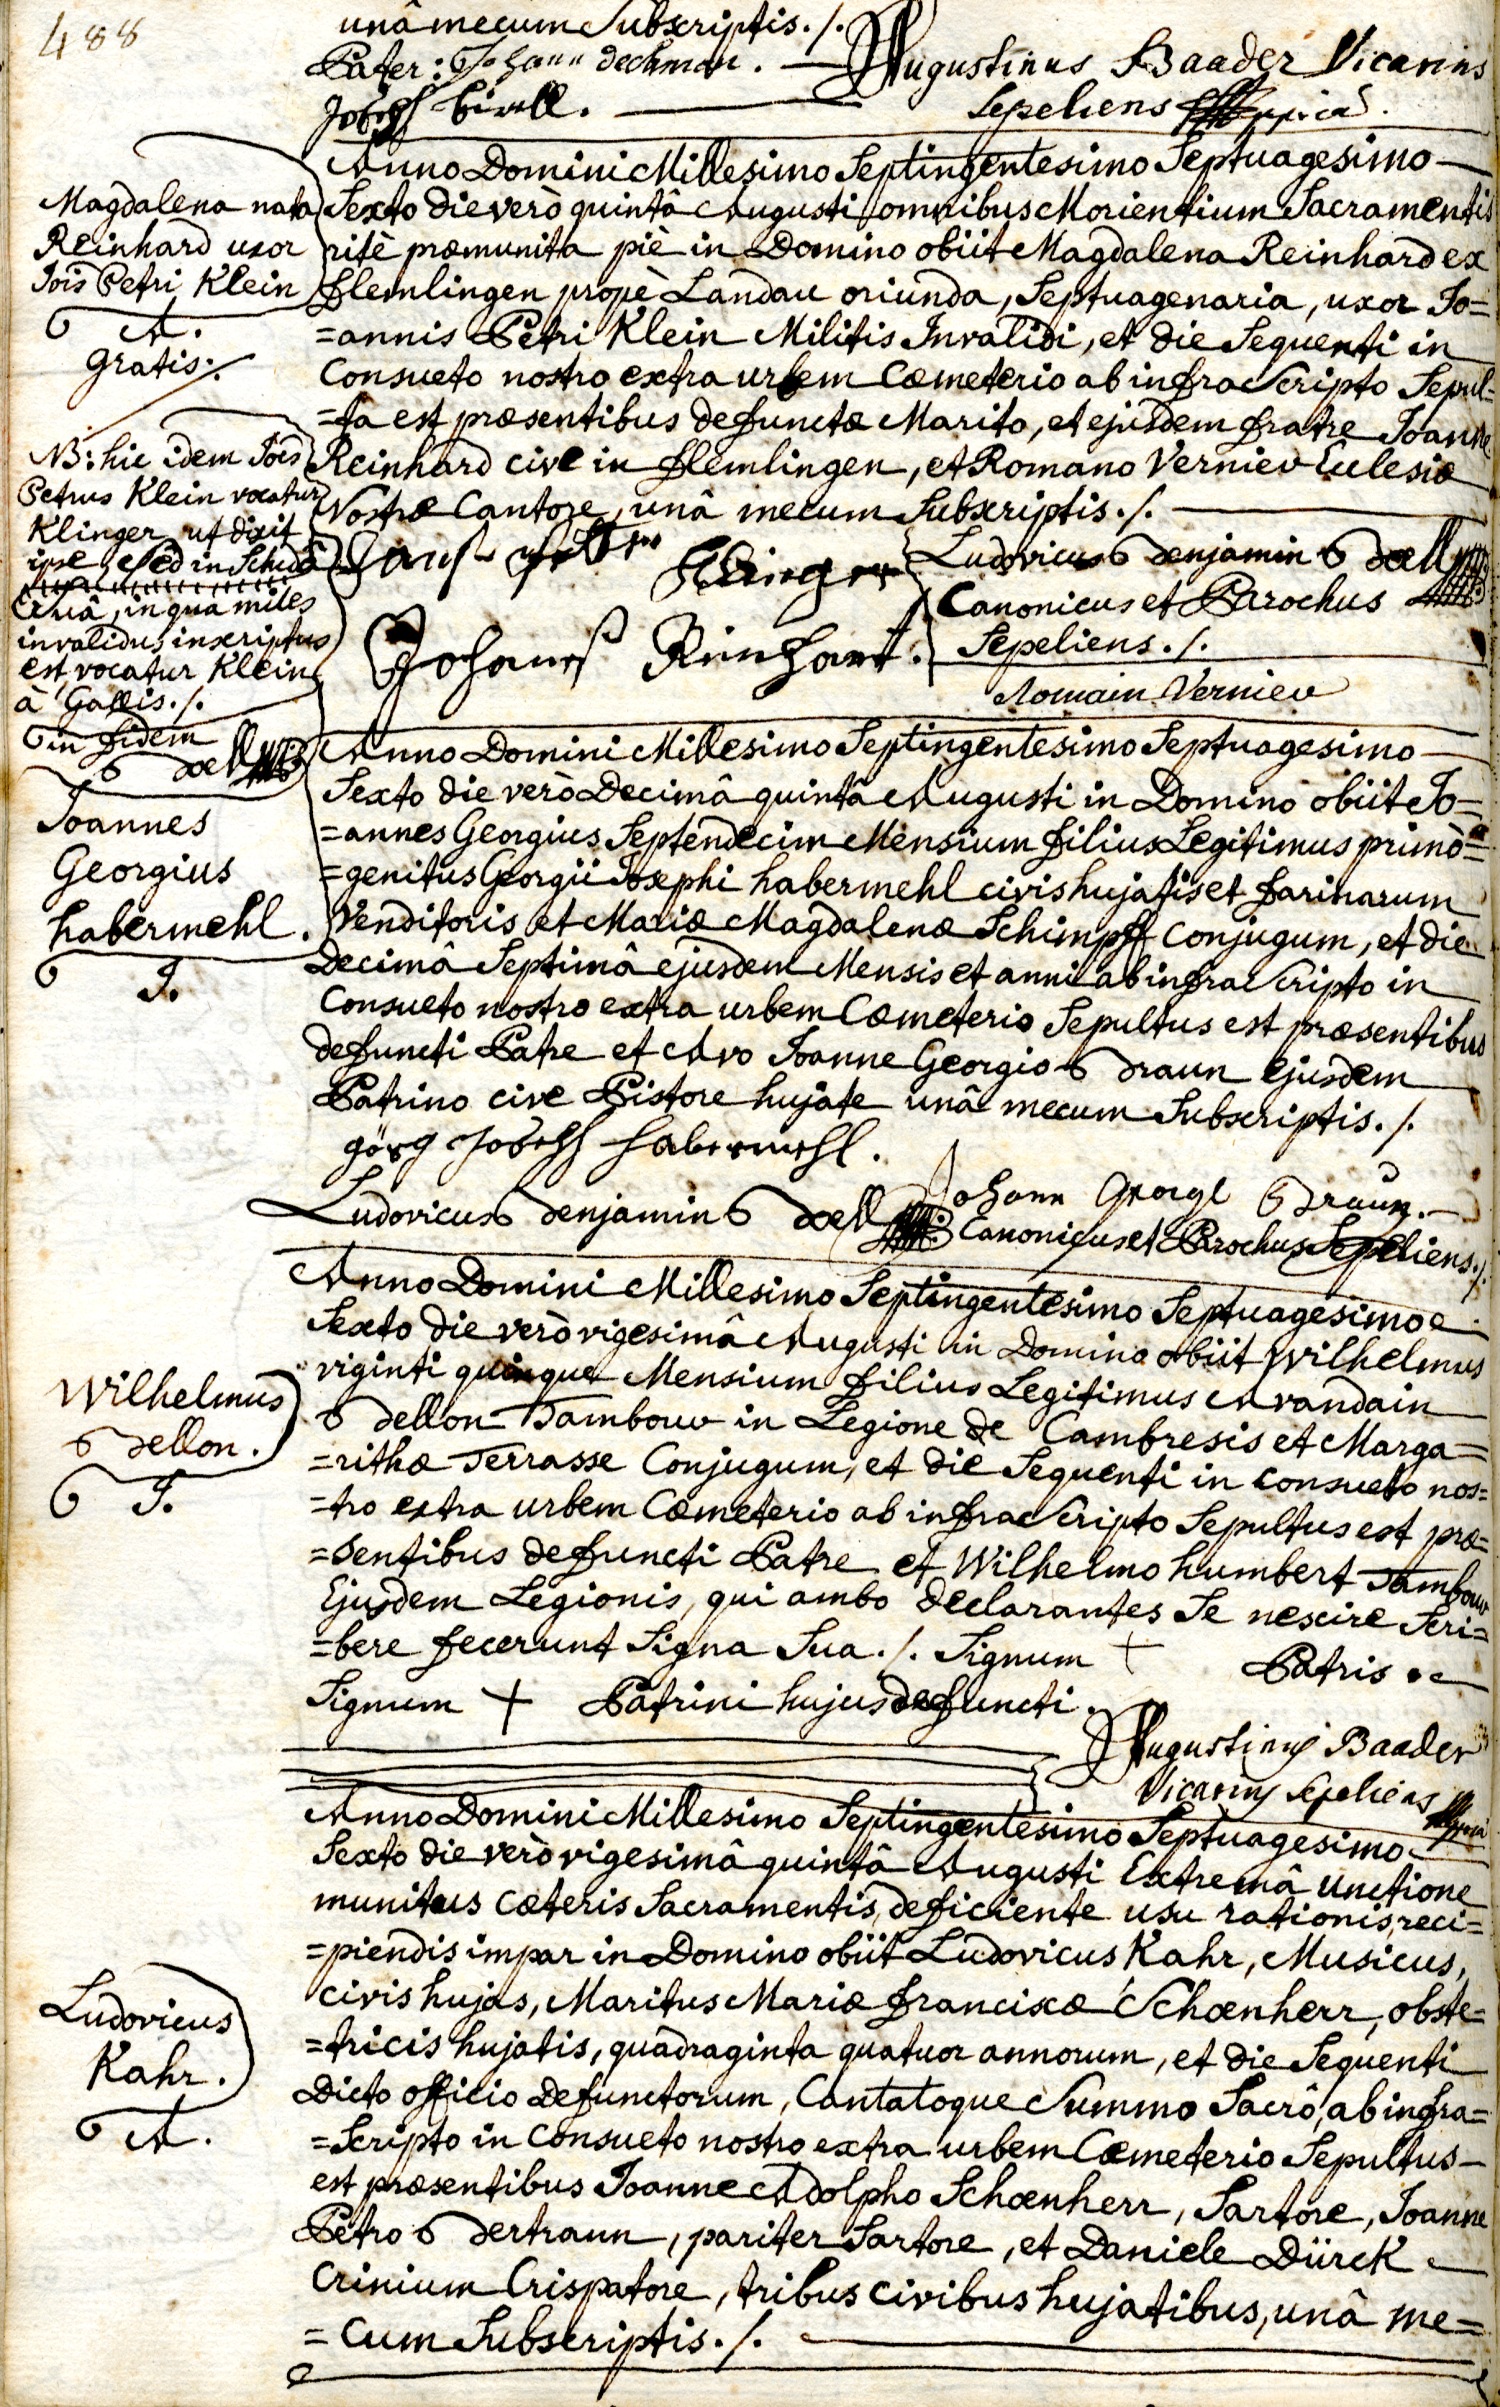 488
unâ mecum Subscriptis ./.
Pater: Johann dechman. — Augustinus Baader Vicarius
Joseph — Sepeliens
Anno Domini Millesimo Septingentesimo Septuagesimo
Magdalena nata
Reinhard uxor
Jois Petri Klein
A.
gratis ./.
Sexto die verò quintâ Augusti omnibus Morientium Sacramentis
ritè præmunita piè in Domino obiit Magdalena Reinhard ex
flemlingen propè Landau oriunda, Septuagenaria, uxor Jo=
=annis Petri Klein Militis Invalidi, et die Sequenti in
Consueto nostro extra urbem Cæmeterio ab infra Scripto Sepul=
=ta est præsentibus defunctæ Marito, et ejusdem fratre Joanne
Reinhard cive in flemlingen, et Romano Vernier Eclesiæ
Nostræ Cantore, unâ mecum Subscriptis ./.
NB: hic idem Jois
Petrus Klein vocatur
Klinger ut dixit
ipse, sed in Schedâ
Suâ, in qua miles
invalidus inscriptus
est, vocatur Klein
à Gallis ./.
in fidem
Bœll
Klinger
Ludovicus Benjamin Bœll
Canonicus et Parochus
Sepeliens ./.
Johannes Rinhart.
Romain Vernier
Anno Domini Millesimo Septingentesimo Septuagesimo
Joannes
Georgius
habermehl.
J.
Sexto die verò Decimâ quintâ Augusti in Domino obiit Jo=
=annes Georgius Septendecim Mensium filius Legitimus primò=
=genitus Georgii Josephi habermehl civis hujatis et farinarum
Venditoris et Mariæ Magdalenæ Schimpff Conjugum, et die
Decimâ Septimâ ejusdem Mensis et anni ab infra Scripto in
Consueto nostro extra urbem Cæmeterio Sepultus est præsentibus
defuncti Patre et Avo Joanne Georgio Braun ejusdem
Patrino cive Pistore hujate unâ mecum Subscriptis ./.
görg Joseph habermehl.
Johann George Braun.
Ludovicus Benjamin Bœll Canonicus et Parochus Sepeliens ./.
Anno Domini Millesimo Septingentesimo Septuagesimo
Wilhelmus
Bellon.
J.
Sexto die verò vigesimâ Augusti in Domino obiit Wilhelmus
viginti quinque Mensium filius Legitimus Avandain
Bellon Tambour in Legione de Cambresis et Marga=
=rithæ Terrasse Conjugum, et die Sequenti in consueto nos=
=tro extra urbem Cæmeterio ab infra Scripto Sepultus est præ=
=sentibus defuncti Patre et Wilhelmo humbert Tambour
Ejusdem Legionis, qui ambo declarantes Se nescire Scri=
=bere fecerunt Signa Sua ./. Signum + Patris
Signum + Patrini hujus defuncti.
Augustinus Baader
Vicarius Sepeliens
Anno Domini Millesimo Septingentesimo Septuagesimo
Ludovicus
Kahr.
A.
Sexto die verò vigesimâ quintâ Augusti Extremâ Unctione
munitus cæteris Sacramentis, deficiente usu rationis, reci=
=piendis impar in Domino obiit Ludovicus Kahr, Musicus,
civis hujas, Maritus Mariæ franciscæ Schœnherr, obste=
=tricis hujatis, quadraginta quatuor annorum, et die Sequenti
Dicto officio Defunctorum, Cantatoque Summo Sacrô, ab infra=
=Scripto in Consueto nostro extra urbem Cæmeterio Sepultus
est præsentibus Joanne Adolpho Schœnherr, Sartore, Joanne
Petro Bertraun, pariter Sartore, et Daniele Dürck
Crinium Crispatore, tribus civibus hujatibus, unâ me=
=cum Subscriptis ./.